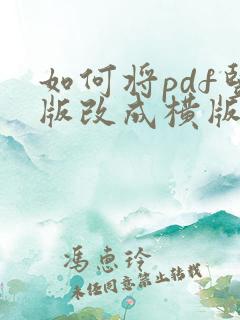 如何将pdf竖
版改成横版
冯惠玲
未经同意禁止转载